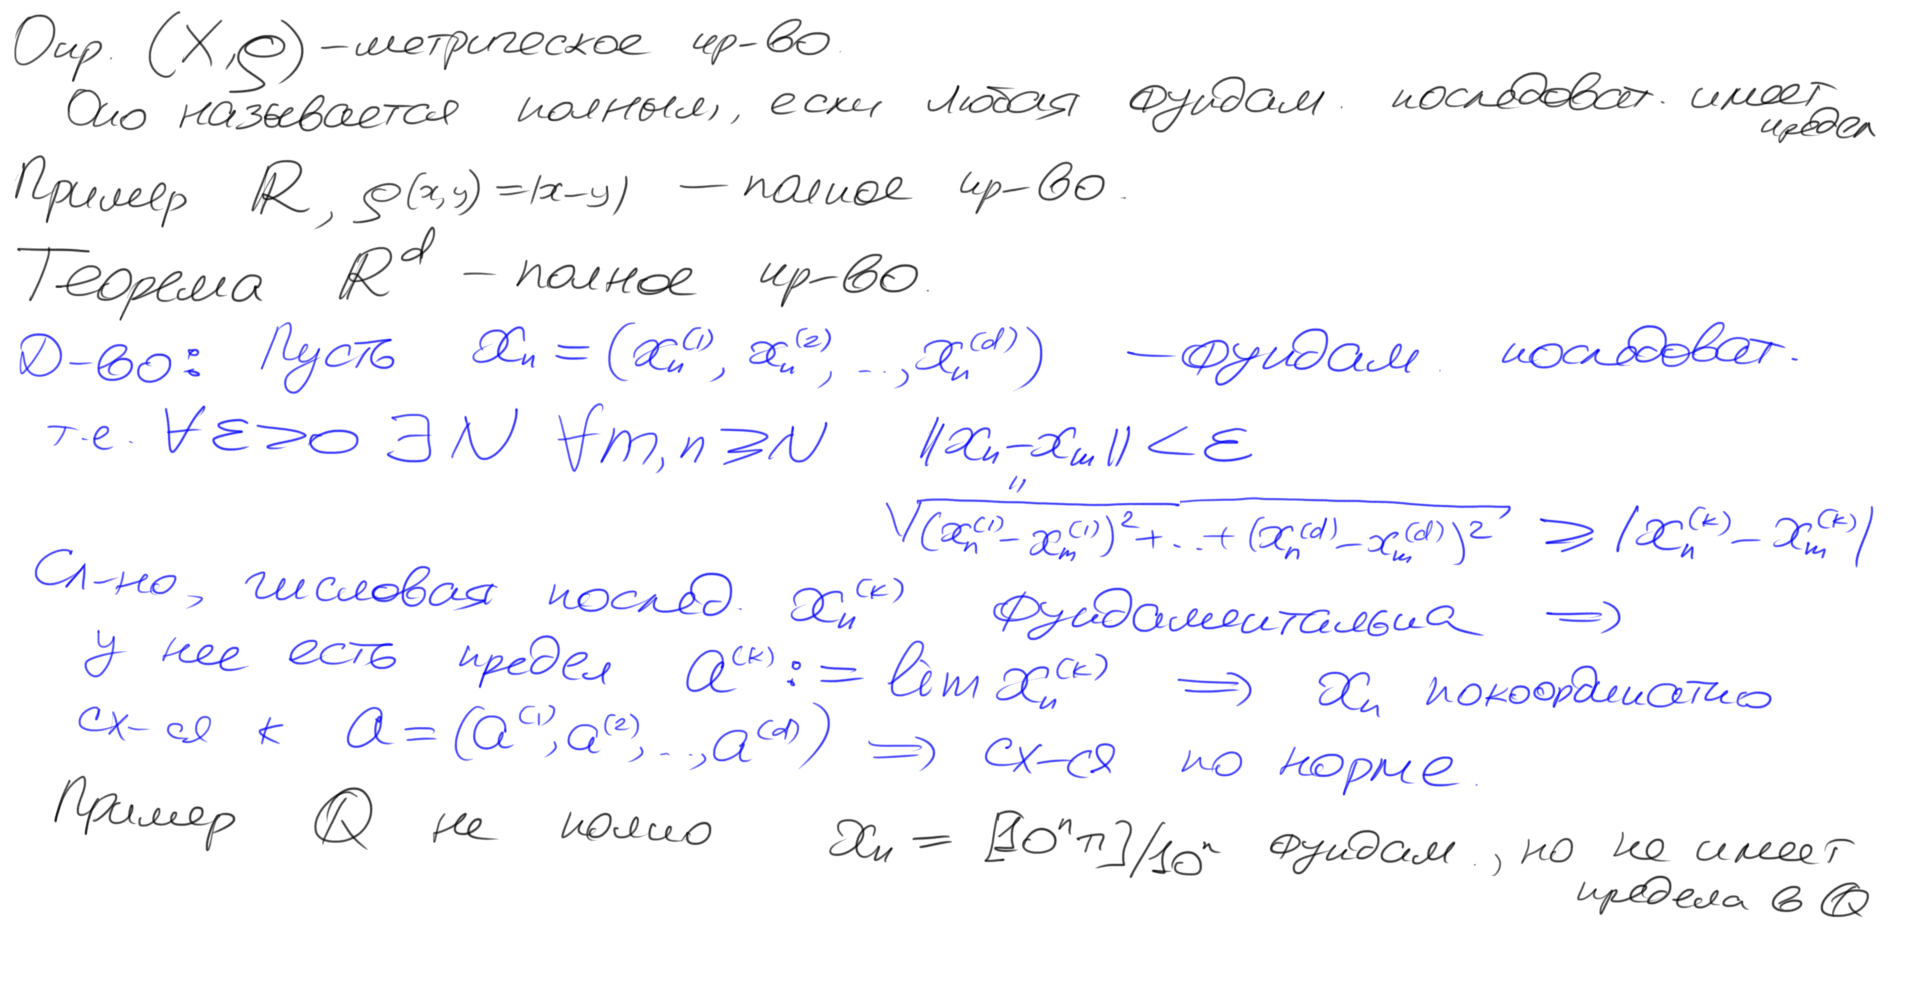 Опр. (X, ρ) – метрическое пр-во.
Оно называется полным, если любая фундам. последоват. имеет предел
Пример ℝ, ρ(x,y) = |x–y| – полное пр-во.
Теорема ℝ^d – полное пр-во.
Д-во: Пусть x_n = (x_n^(1), x_n^(2), .., x_n^(d)) – фундам. последоват.
т.е. ∀ε>0 ∃N ∀m,n ≥ N ||x_n – x_m|| < ε
"
√((x_n^(1) – x_m^(1))^2 + .. + (x_n^(d) – x_m^(d))^2) ≥ |x_n^(k) – x_m^(k)|
Сл-но, числовая послед. x_n^(k) фундаментальна ⇒
у нее есть предел a^(k) := lim x_n^(k) ⇒ x_n покоординатно
сх-ся к a = (a^(1), a^(2), .., a^(d)) ⇒ сх-ся по норме.
Пример ℚ не полно x_n = [10^n π]/10^n фундам., но не имеет
предела в ℚ